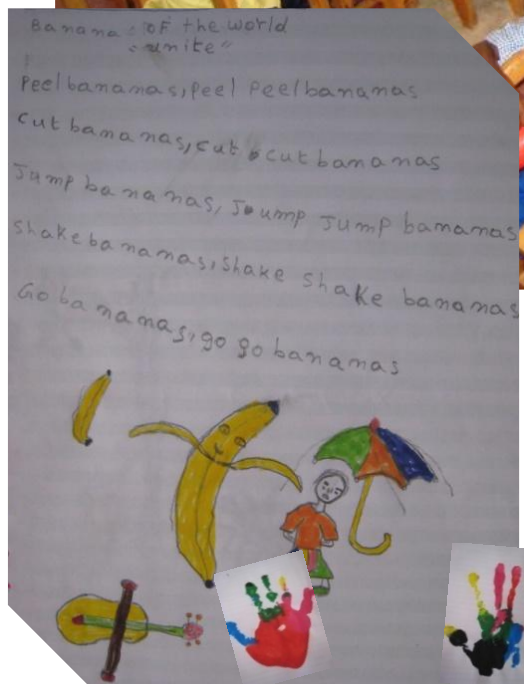 Banana : OF the world
: unite"
Peel bananas, Peel Peel bananas
Cut bananas, cut cut bananas
Jump bananas, Joump Jump bamanas
Shake bananas, Shake Shake bananas
Go bananas, go go bananas